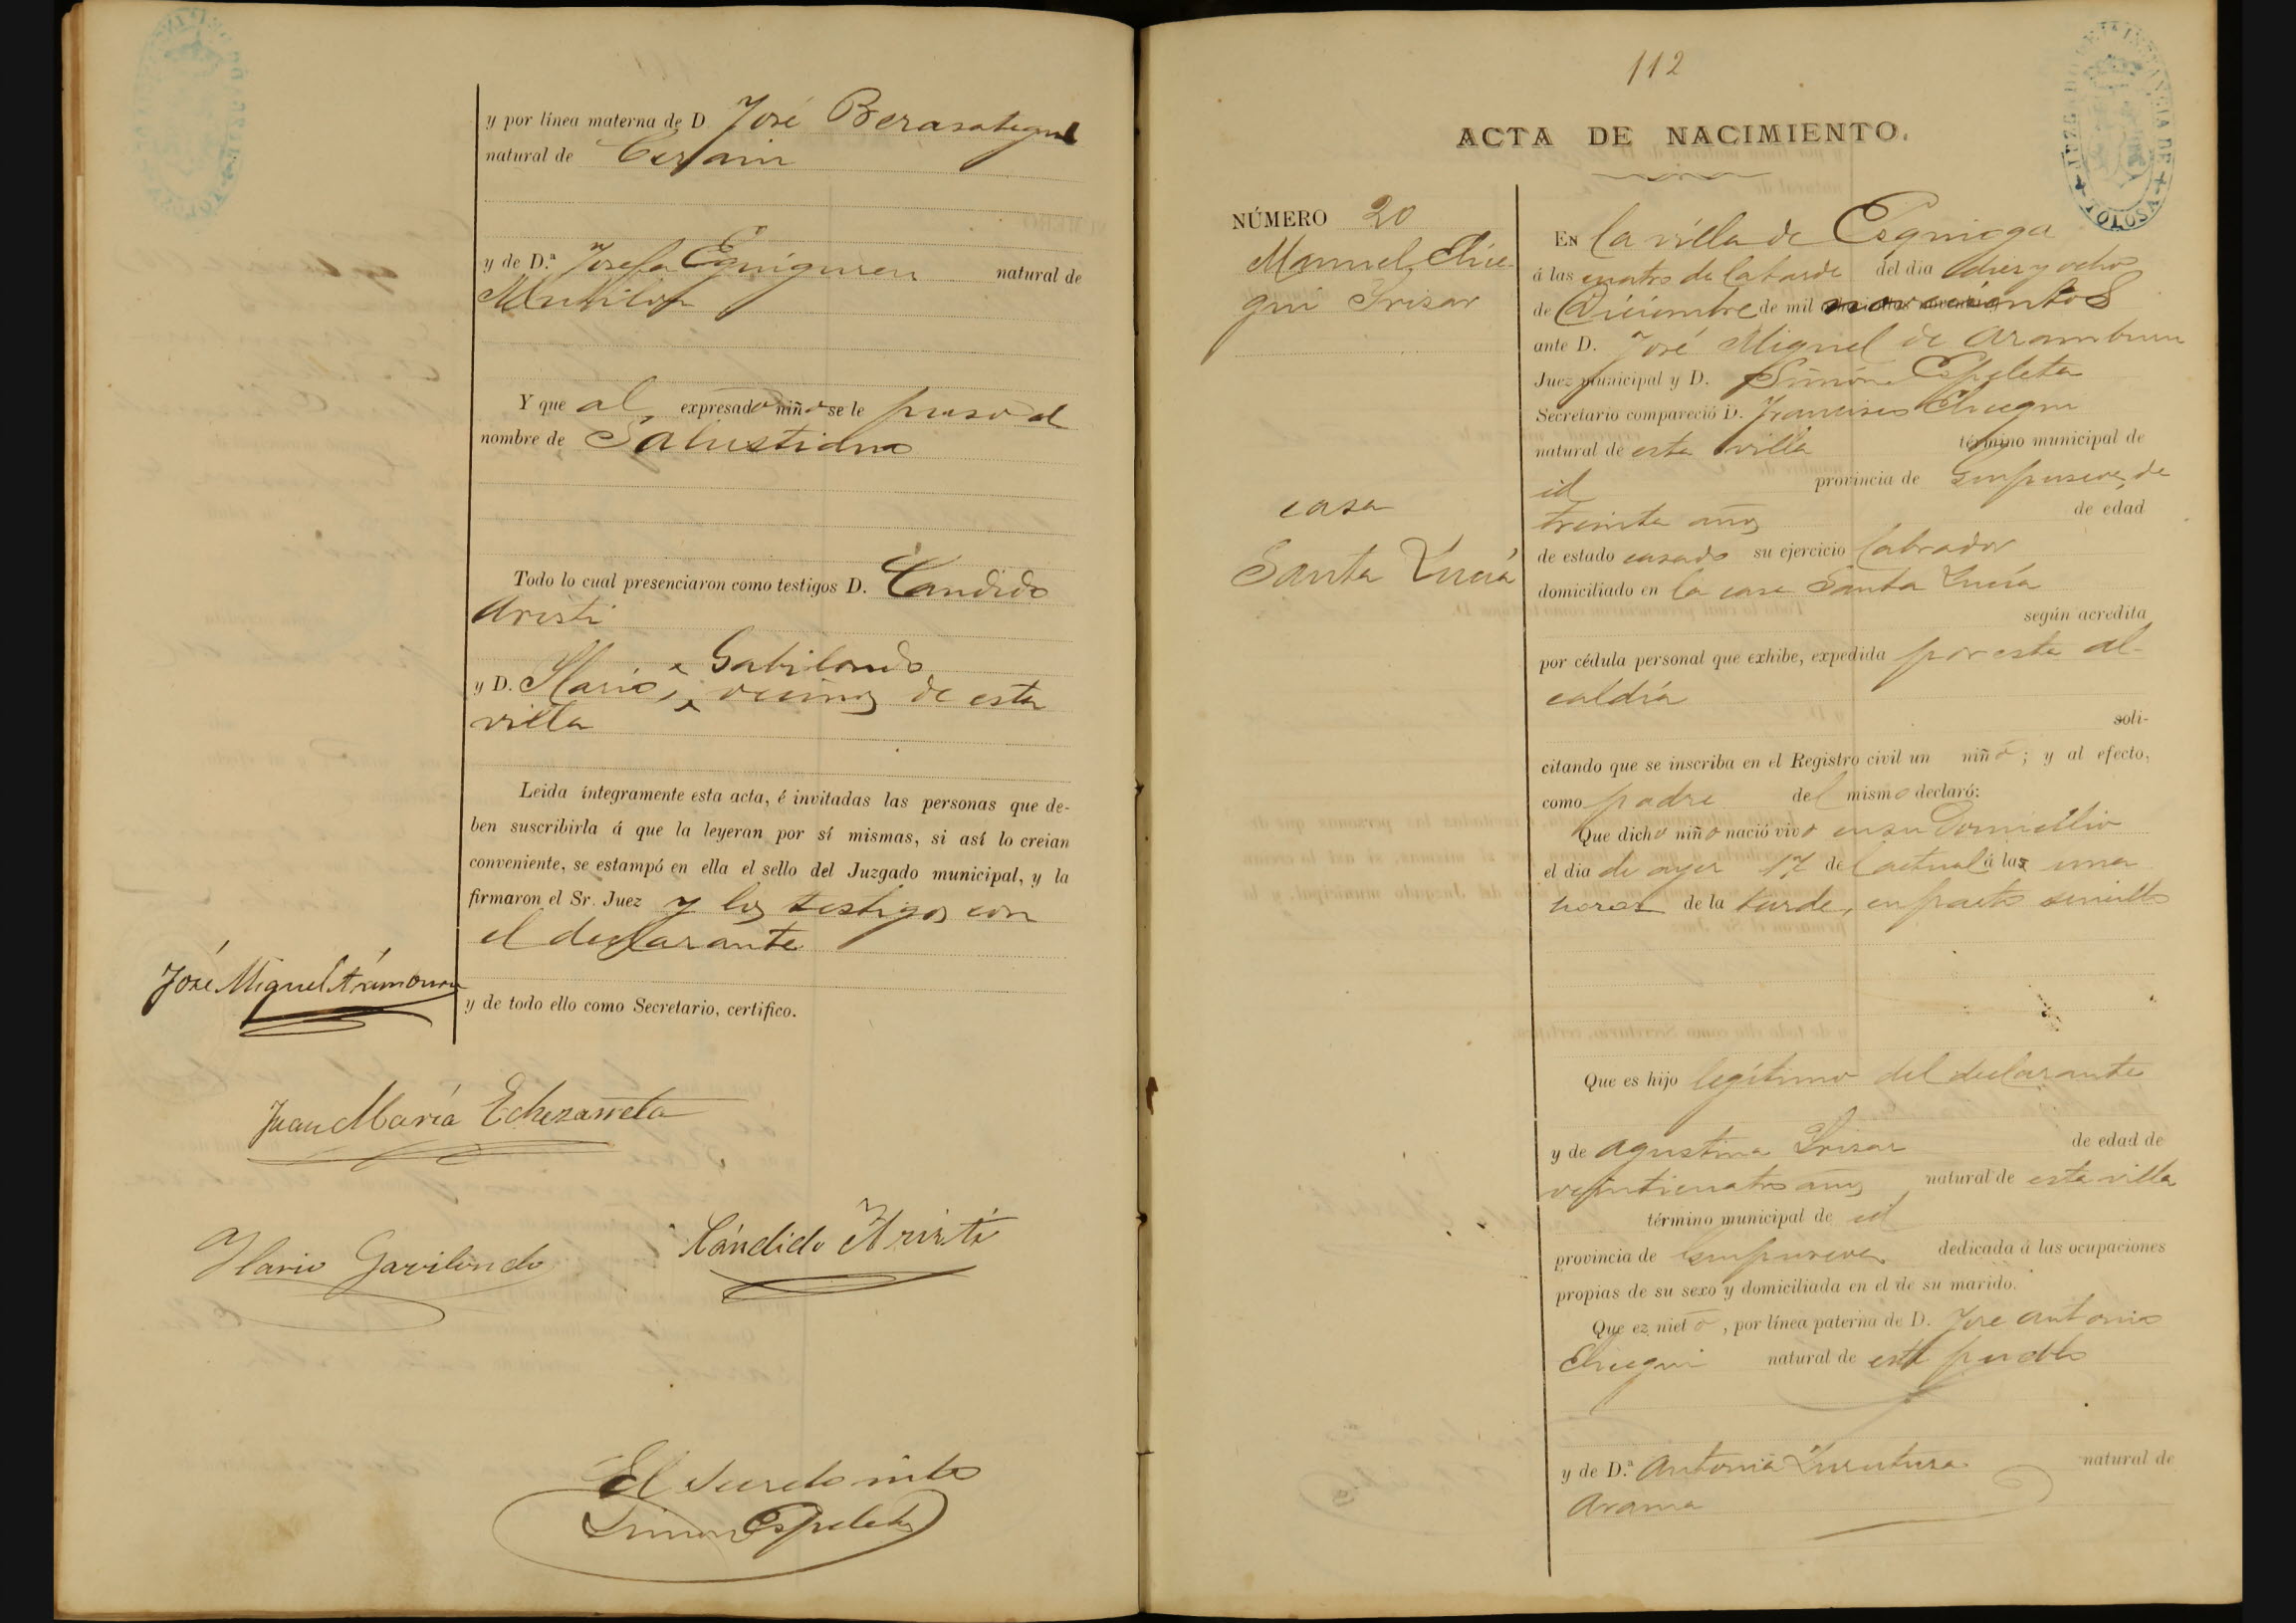 y por línea materna de D. José Berasategui
natural de Cerain
y de D.ª Josefa Eguiguren natural de
Mutiloa
Y que al expresado niño se le puso el
nombre de Salustiano
Todo lo cual presenciaron como testigos D. Candido
Aristi
Gabilondo
y D. Ilario, vecinos de esta
villa
Leida íntegramente esta acta, é invitadas las personas que de-
ben suscribirla á que la leyeran por sí mismas, si así lo creian
conveniente, se estampó en ella el sello del Juzgado municipal, y la
firmaron el Sr. Juez y los testigos con
el declarante
y de todo ello como Secretario, certifico.
José Miguel Aramburu
Juan María Echezarreta
Ilario Gavilondo
Cándido Aristi
El Secretario
Simon Espeleta
112
JUZGADO DE 1ª INSTANCIA DE TOLOSA
ACTA DE NACIMIENTO.
NÚMERO 20
Manuel Elice-
gui Irisar
casa
Santa Lucía
En la villa de Ezquioga
á las cuatro de la tarde del dia diez y ocho
de Diciembre de mil novecientos
ante D. José Miguel de Aramburu
Juez municipal y D. Simón Espeleta
Secretario compareció D. Francisco Elicegui
natural de esta villa término municipal de
id provincia de Guipuzcoa, de
treinta años de edad
de estado casado su ejercicio labrador
domiciliado en la casa Santa Lucía
según acredita
por cédula personal que exhibe, expedida por esta al-
caldía
soli-
citando que se inscriba en el Registro civil un niño; y al efecto,
como padre del mismo declaró:
Que dicho niño nació vivo en su domicilio
el dia de ayer 17 del actual á la una
horas de la tarde, en parto sencillo
Que es hijo legítimo del declarante
y de Agustina Irisar de edad de
veinticuatro años, natural de esta villa
término municipal de id
provincia de Guipuzcoa dedicada á las ocupaciones
propias de su sexo y domiciliada en el de su marido.
Que ez nieto, por línea paterna de D. Jose Antonio
Elicegui natural de este pueblo
y de D.ª Antonia Zurutuza natural de
Arama